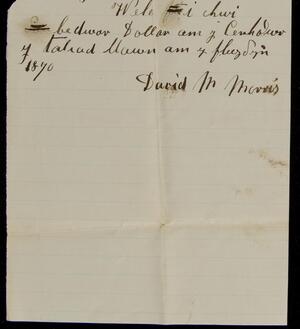 Wele i chwi
bedwar Dollar am y Cenhadwr
y taliad llawn am y flwydyn
1870
David M Morris